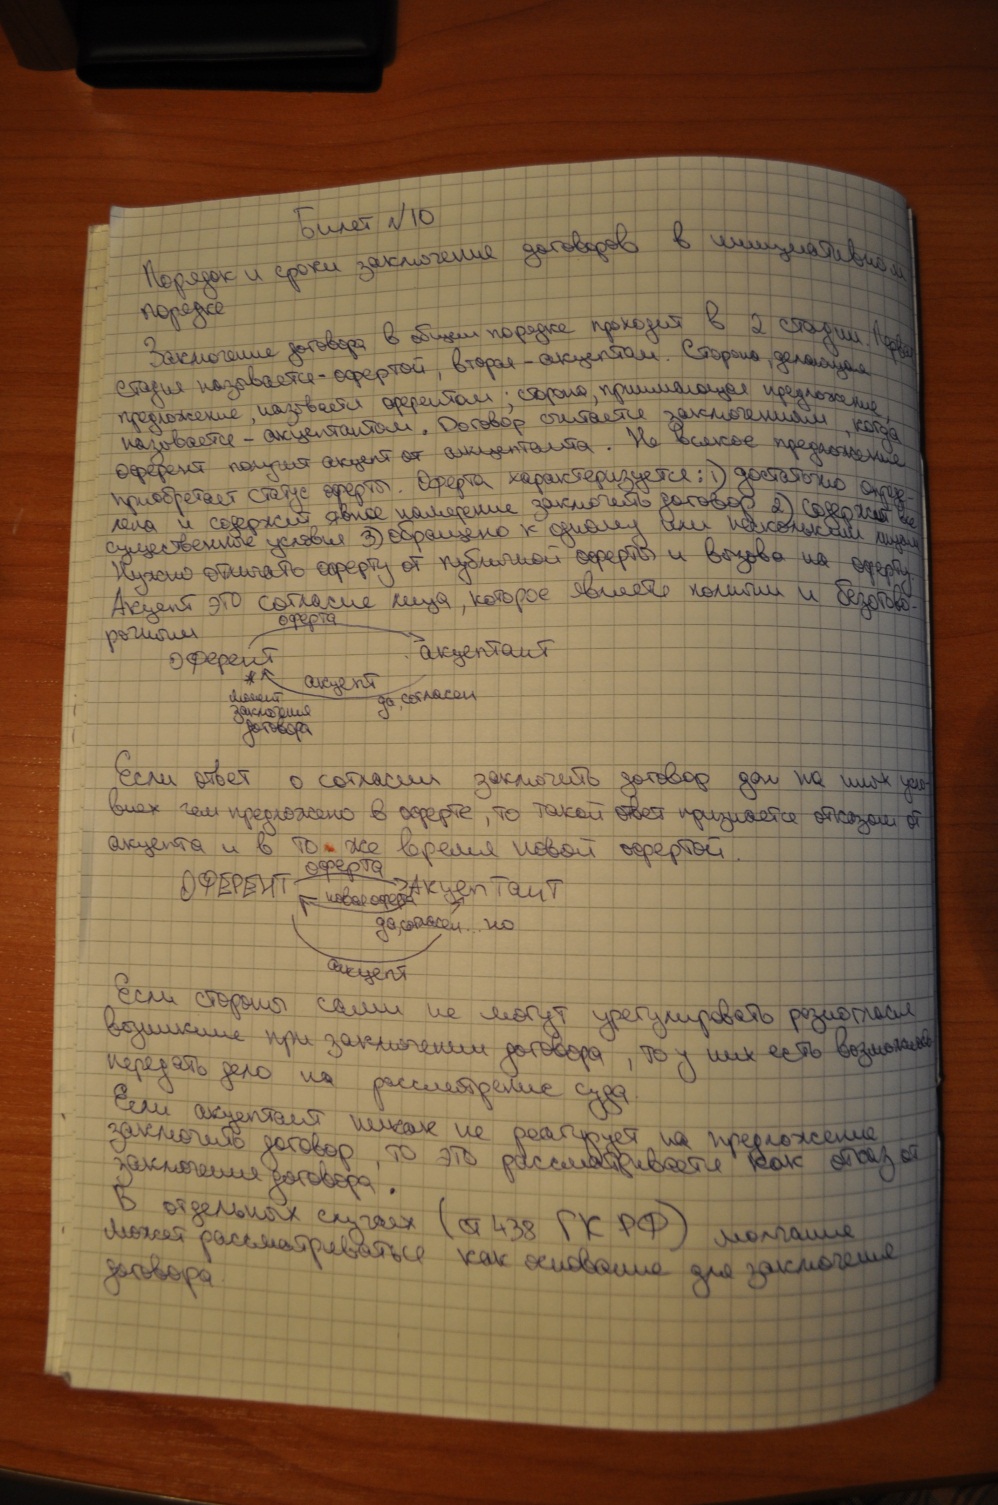 Билет №10
Порядок и сроки заключение договоров в инициативном
порядке
Заключение договора в общем порядке проходит в 2 стадии. Первая
стадия называется - офертой, вторая - акцептом. Сторона, делающая
предложение, назывется оферентом; сторона, принимающая предложение,
называется - акцептантом. Договор считается заключенным, когда
оферент получит акцепт от акцептанта. Не всякое предложение
приобретает статус оферты. Оферта характеризуется: 1) достаточно опреде-
лена и содержит явное намерение заключить договор 2) содержит все
существенное условия 3) обращено к одному или нескольким лицам
Нужно отличать оферту от публичной оферты и вызова на оферту.
Акцепт это согласие лица, которое является полным и безогово-
рочным
оферта
Оферент акцептант
акцепт
да, согласен
момент
заключения
договора
Если ответ о согласии заключить договор дан на иных усло-
виях чем предложено в оферте, то такой ответ признается отказом от
акцепта и в то же время новой офертой.
оферта
ОФЕРЕНТ Акцептант
новая оферта
да, согласен... но
акцепт
Если стороны сами не могут урегулировать разногласия
возникшие при заключении договора, то у них есть возможность
передать дело на рассмотрение суда.
Если акцептант никак не реагирует на предложение
заключить договор, то это рассматривается как отказ от
заключения договора.
В отдельных случаях (ст 438 ГК РФ) молчание
может рассматриваться как основание для заключение
договора.